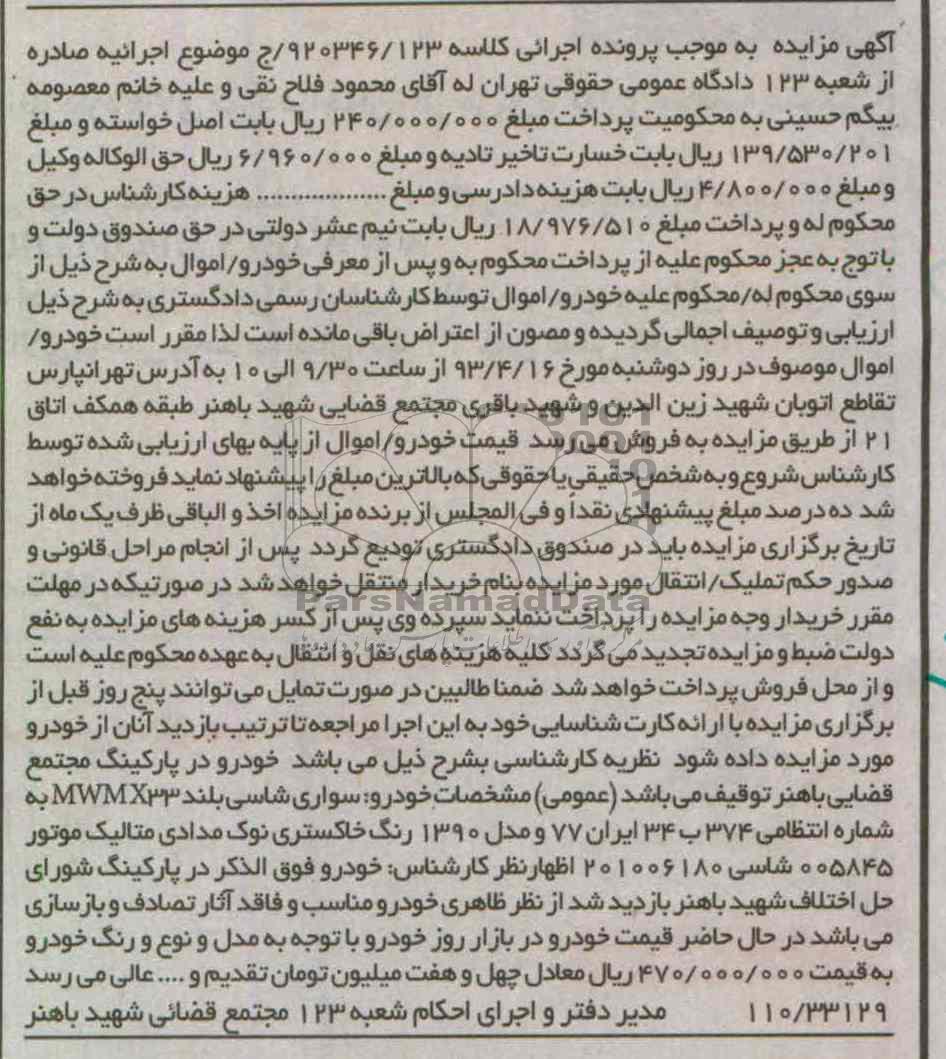 آگهی مزایده به موجب پرونده اجرائی کلاسه ۹۲۰۳۴۶/۱۲۳/ج موضوع اجرائیه صادره
از شعبه ۱۲۳ دادگاه عمومی حقوقی تهران له آقای محمود فلاح نقی و علیه خانم معصومه
بیگم حسینی به محکومیت پرداخت مبلغ ۲۴۰/۰۰۰/۰۰۰ ریال بابت اصل خواسته و مبلغ
۱۳۹/۵۳۰/۲۰۱ ریال بابت خسارت تاخیر تادیه و مبلغ ۶/۹۶۰/۰۰۰ ریال حق الوکاله وکیل
و مبلغ ۴/۸۰۰/۰۰۰ ریال بابت هزینه دادرسی و مبلغ .................. هزینه کارشناس در حق
محکوم له و پرداخت مبلغ ۱۸/۹۷۶/۵۱۰ ریال بابت نیم عشر دولتی در حق صندوق دولت و
با توج به عجز محکوم علیه از پرداخت محکوم به و پس از معرفی خودرو/اموال به شرح ذیل از
سوی محکوم له/محکوم علیه خودرو/اموال توسط کارشناسان رسمی دادگستری به شرح ذیل
ارزیابی و توصیف اجمالی گردیده و مصون از اعتراض باقی مانده است لذا مقرر است خودرو/
اموال موصوف در روز دوشنبه مورخ ۹۳/۴/۱۶ از ساعت ۹/۳۰ الی ۱۰ به آدرس تهرانپارس
تقاطع اتوبان شهید زین الدین و شهید باقری مجتمع قضایی شهید باهنر طبقه همکف اتاق
۲۱ از طریق مزایده به فروش می رسد قیمت خودرو/اموال از پایه بهای ارزیابی شده توسط
کارشناس شروع و به شخص حقیقی یا حقوقی که بالاترین مبلغ را پیشنهاد نماید فروخته خواهد
شد ده درصد مبلغ پیشنهادی نقداً و فی المجلس از برنده مزایده اخذ و الباقی ظرف یک ماه از
تاریخ برگزاری مزایده باید در صندوق دادگستری تودیع گردد پس از انجام مراحل قانونی و
صدور حکم تملیک/انتقال مورد مزایده بنام خریدار منتقل خواهد شد در صورتیکه در مهلت
مقرر خریدار وجه مزایده را پرداخت ننماید سپرده وی پس از کسر هزینه های مزایده به نفع
دولت ضبط و مزایده تجدید می گردد کلیه هزینه های نقل و انتقال به عهده محکوم علیه است
و از محل فروش پرداخت خواهد شد ضمنا طالبین در صورت تمایل می توانند پنج روز قبل از
برگزاری مزایده با ارائه کارت شناسایی خود به این اجرا مراجعه تا ترتیب بازدید آنان از خودرو
مورد مزایده داده شود نظریه کارشناسی بشرح ذیل می باشد خودرو در پارکینگ مجتمع
قضایی باهنر توقیف می باشد (عمومی) مشخصات خودرو: سواری شاسی بلند MWMX۳۳ به
شماره انتظامی ۳۷۴ ب ۳۴ ایران ۷۷ و مدل ۱۳۹۰ رنگ خاکستری نوک مدادی متالیک موتور
۰۰۵۸۴۵ شاسی ۲۰۱۰۰۶۱۸۰ اظهارنظر کارشناس: خودرو فوق الذکر در پارکینگ شورای
حل اختلاف شهید باهنر بازدید شد از نظر ظاهری خودرو مناسب و فاقد آثار تصادف و بازسازی
می باشد در حال حاضر قیمت خودرو در بازار روز خودرو با توجه به مدل و نوع و رنگ خودرو
به قیمت ۴۷۰/۰۰۰/۰۰۰ ریال معادل چهل و هفت میلیون تومان تقدیم و .... عالی می رسد
۱۱۰/۳۳۱۲۹ مدیر دفتر و اجرای احکام شعبه ۱۲۳ مجتمع قضائی شهید باهنر
ParsNamadData